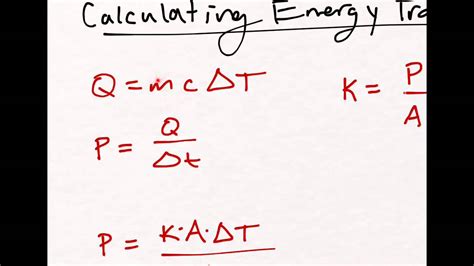 Calculating Energy Tra
Q = m c ΔT
K = P / A
P = Q / Δt
P = K·A·ΔT